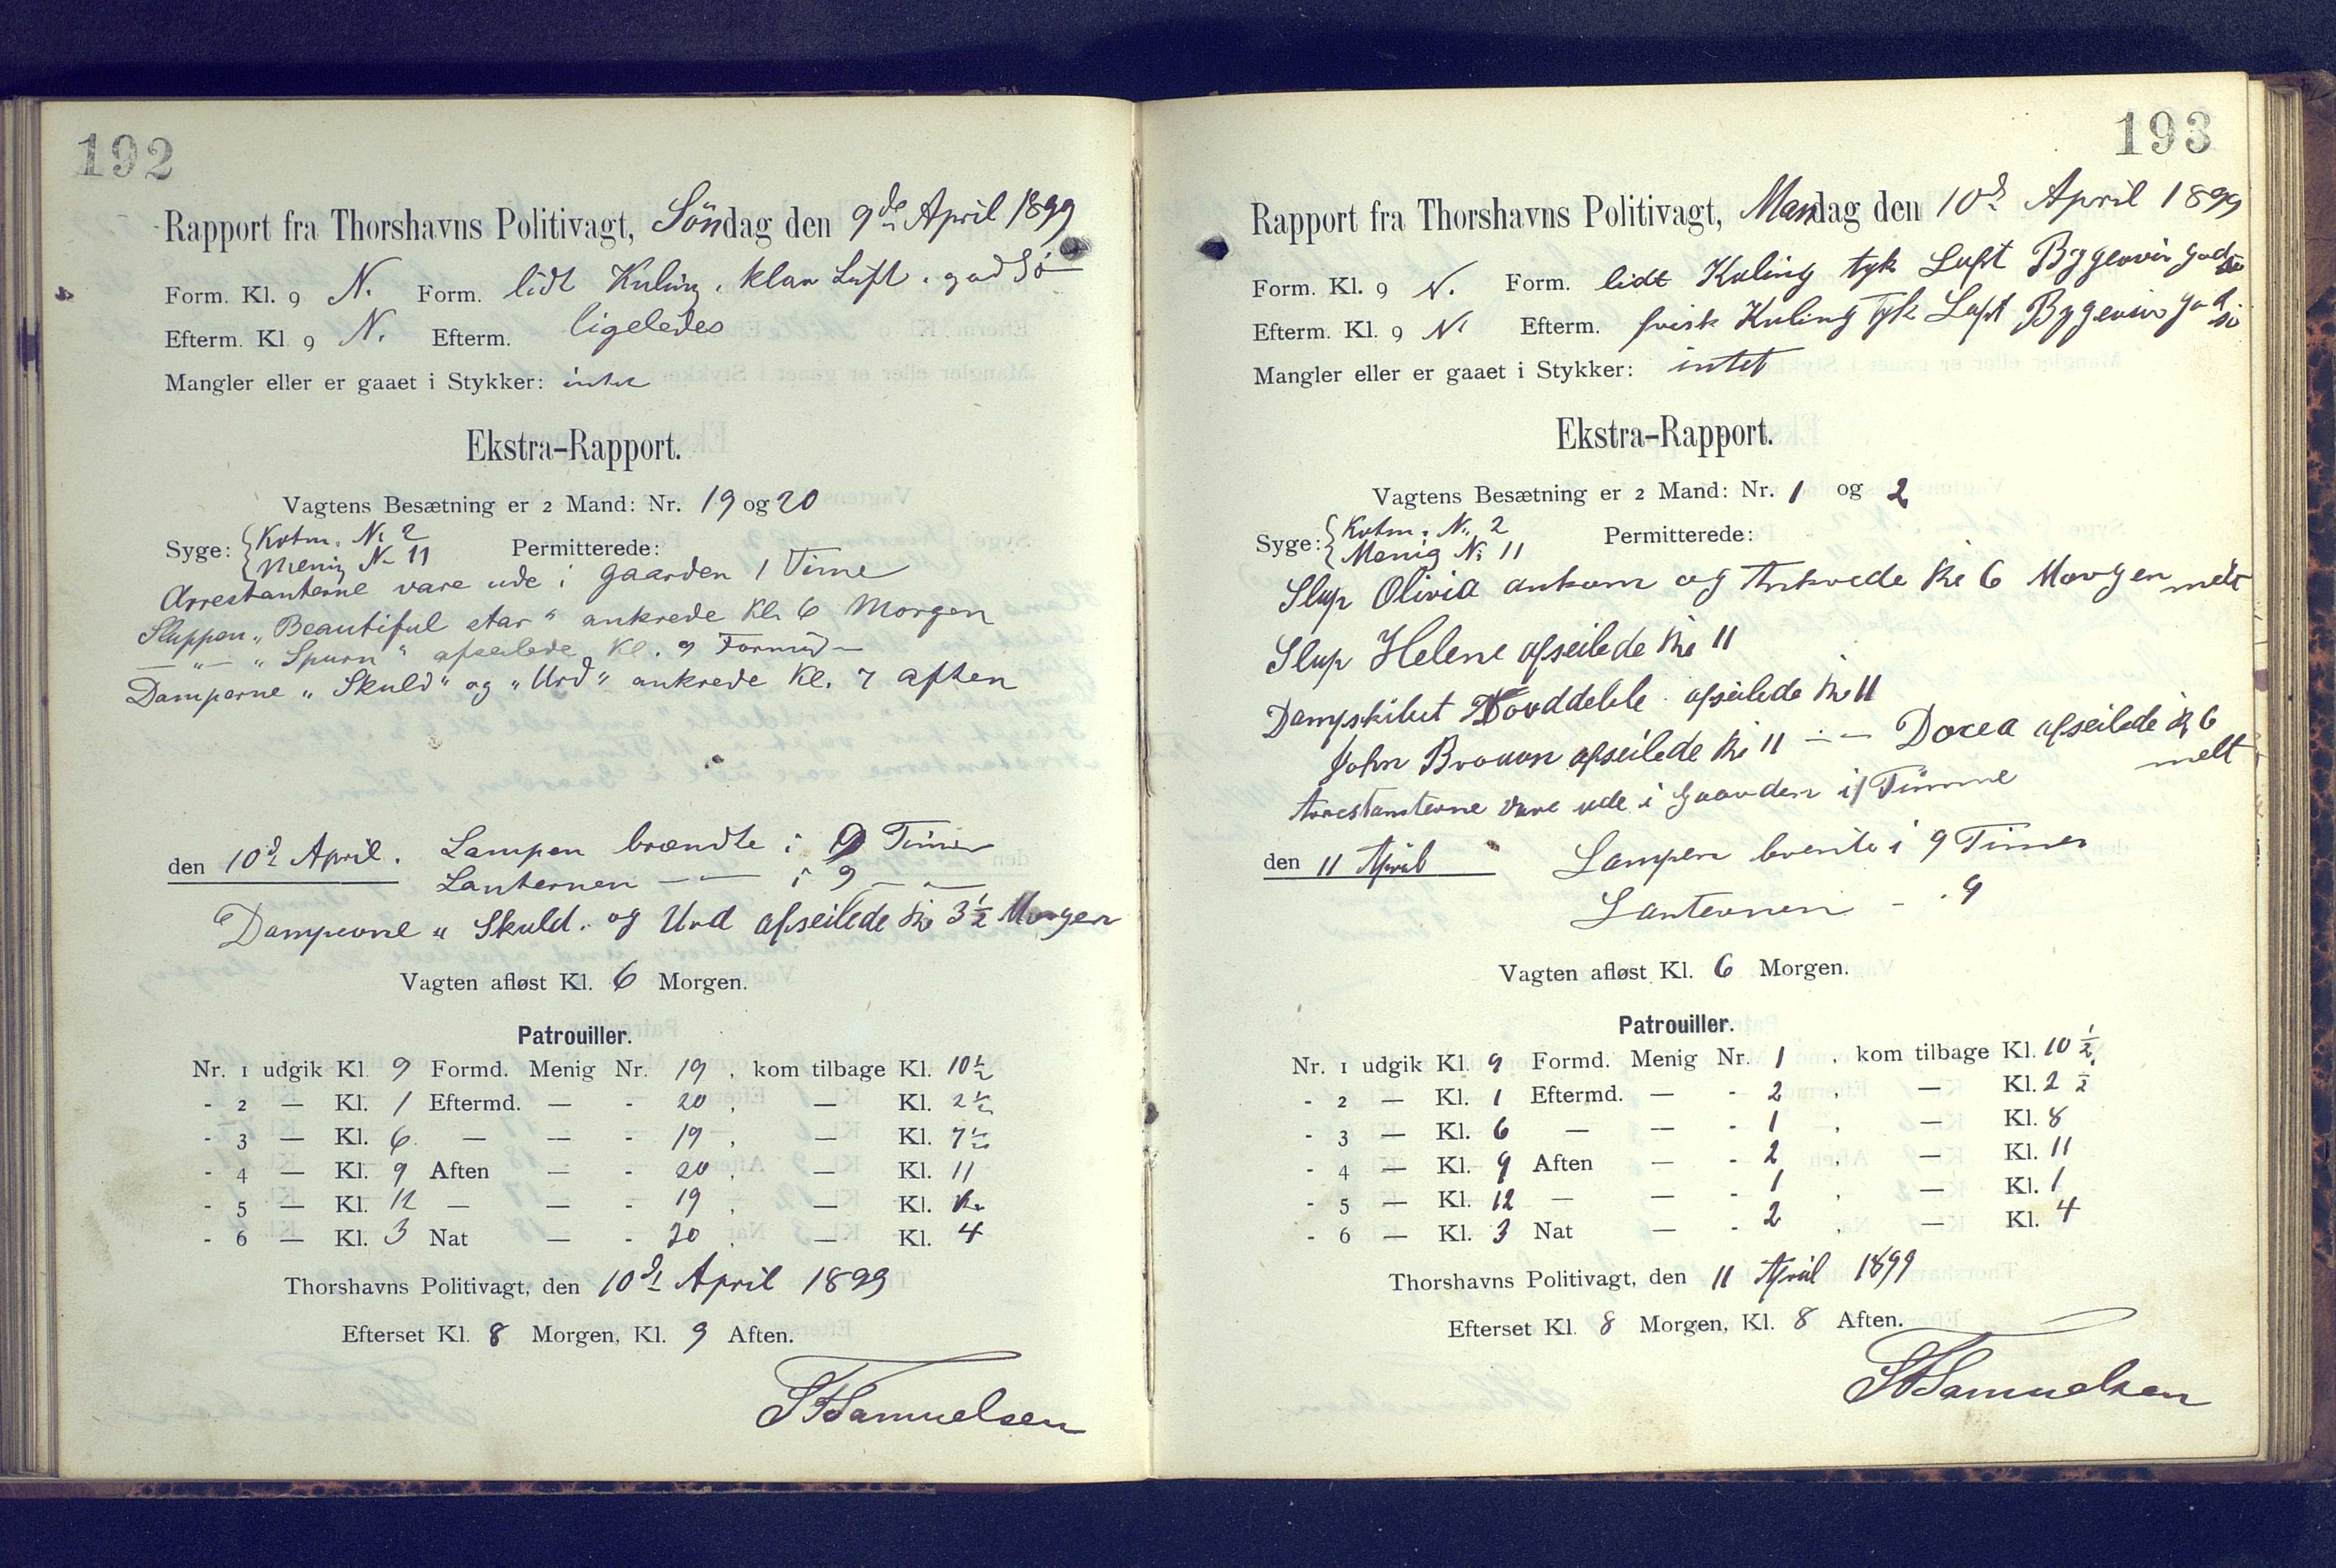 192
Rapport fra Thorshavns Politivagt, Söndag den 9de April 1899
Form. Kl. 9 N. Form. lidt Kuling, klar Luft. god Sö
Efterm. Kl. 9 N. Efterm. ligeledes
Mangler eller er gaaet i Stykker: intet
Ekstra-Rapport.
Vagtens Besætning er 2 Mand: Nr. 19 og 20
Syge: Kvtm. No 2 Permitterede:
Menig No 11
Arrestanterne vare ude i gaarden 1 Time
Sluppen „Beautiful star“ ankrede Kl. 6 Morgen
— „ — „Spurn“ afseilede Kl. 9 Formid—
Damperne „Skuld“ og „Urd“ ankrede Kl. 7 aften
den 10d April. Lampen brændte i 9 Timer
Lanternen — — i 9 — —
Damperne „Skuld„ og Urd afseilede Kl 3½ Morgen
Vagten afløst Kl. 6 Morgen.
Patrouiller.
Nr. 1 udgik Kl. 9 Formd. Menig Nr. 19, kom tilbage Kl. 10½
- 2 — Kl. 1 Eftermd. — - 20, — Kl. 2½
- 3 — Kl. 6 — — - 19, — Kl. 7½
- 4 — Kl. 9 Aften — - 20, — Kl. 11
- 5 — Kl. 12 — — - 19, — Kl.
- 6 — Kl. 3 Nat — - 20, — Kl. 4
Thorshavns Politivagt, den 10d April 1899
Efterset Kl. 8 Morgen, Kl. 9 Aften.
Samuelsen
193
Rapport fra Thorshavns Politivagt, Mandag den 10d April 1899
Form. Kl. 9 N. Form. lidt Kuling tyk Luft Bygevir god sö
Efterm. Kl. 9 N Efterm. frisk Kuling Tyk Luft Bygevir god sö
Mangler eller er gaaet i Stykker: intet
Ekstra-Rapport.
Vagtens Besætning er 2 Mand: Nr. 1 og 2
Syge: Kvtm. No. 2 Permitterede:
Menig No 11
Slup Olivia ankom og Ankrede Kl 6 Morgen melt
Slup Helene afseilede Kl 11
Dampskibet afseilede Kl 11
John Brouon afseilede Kl 11 — — Docea afseilede Kl 6
melt
Arrestanterne vare ude i Gaarden i 1 Timme
den 11 April Lampen brente i 9 Timer
Lanternen - . 9
Vagten afløst Kl. 6 Morgen.
Patrouiller.
Nr. 1 udgik Kl. 9 Formd. Menig Nr. 1, kom tilbage Kl. 10½
- 2 — Kl. 1 Eftermd. — - 2, — Kl. 2½
- 3 — Kl. 6 — — - 1, — Kl. 8
- 4 — Kl. 9 Aften — - 2, — Kl. 11
- 5 — Kl. 12 — — - 1, — Kl. 1
- 6 — Kl. 3 Nat — - 2, — Kl. 4
Thorshavns Politivagt, den 11 April 1899
Efterset Kl. 8 Morgen, Kl. 8 Aften.
Samuelsen